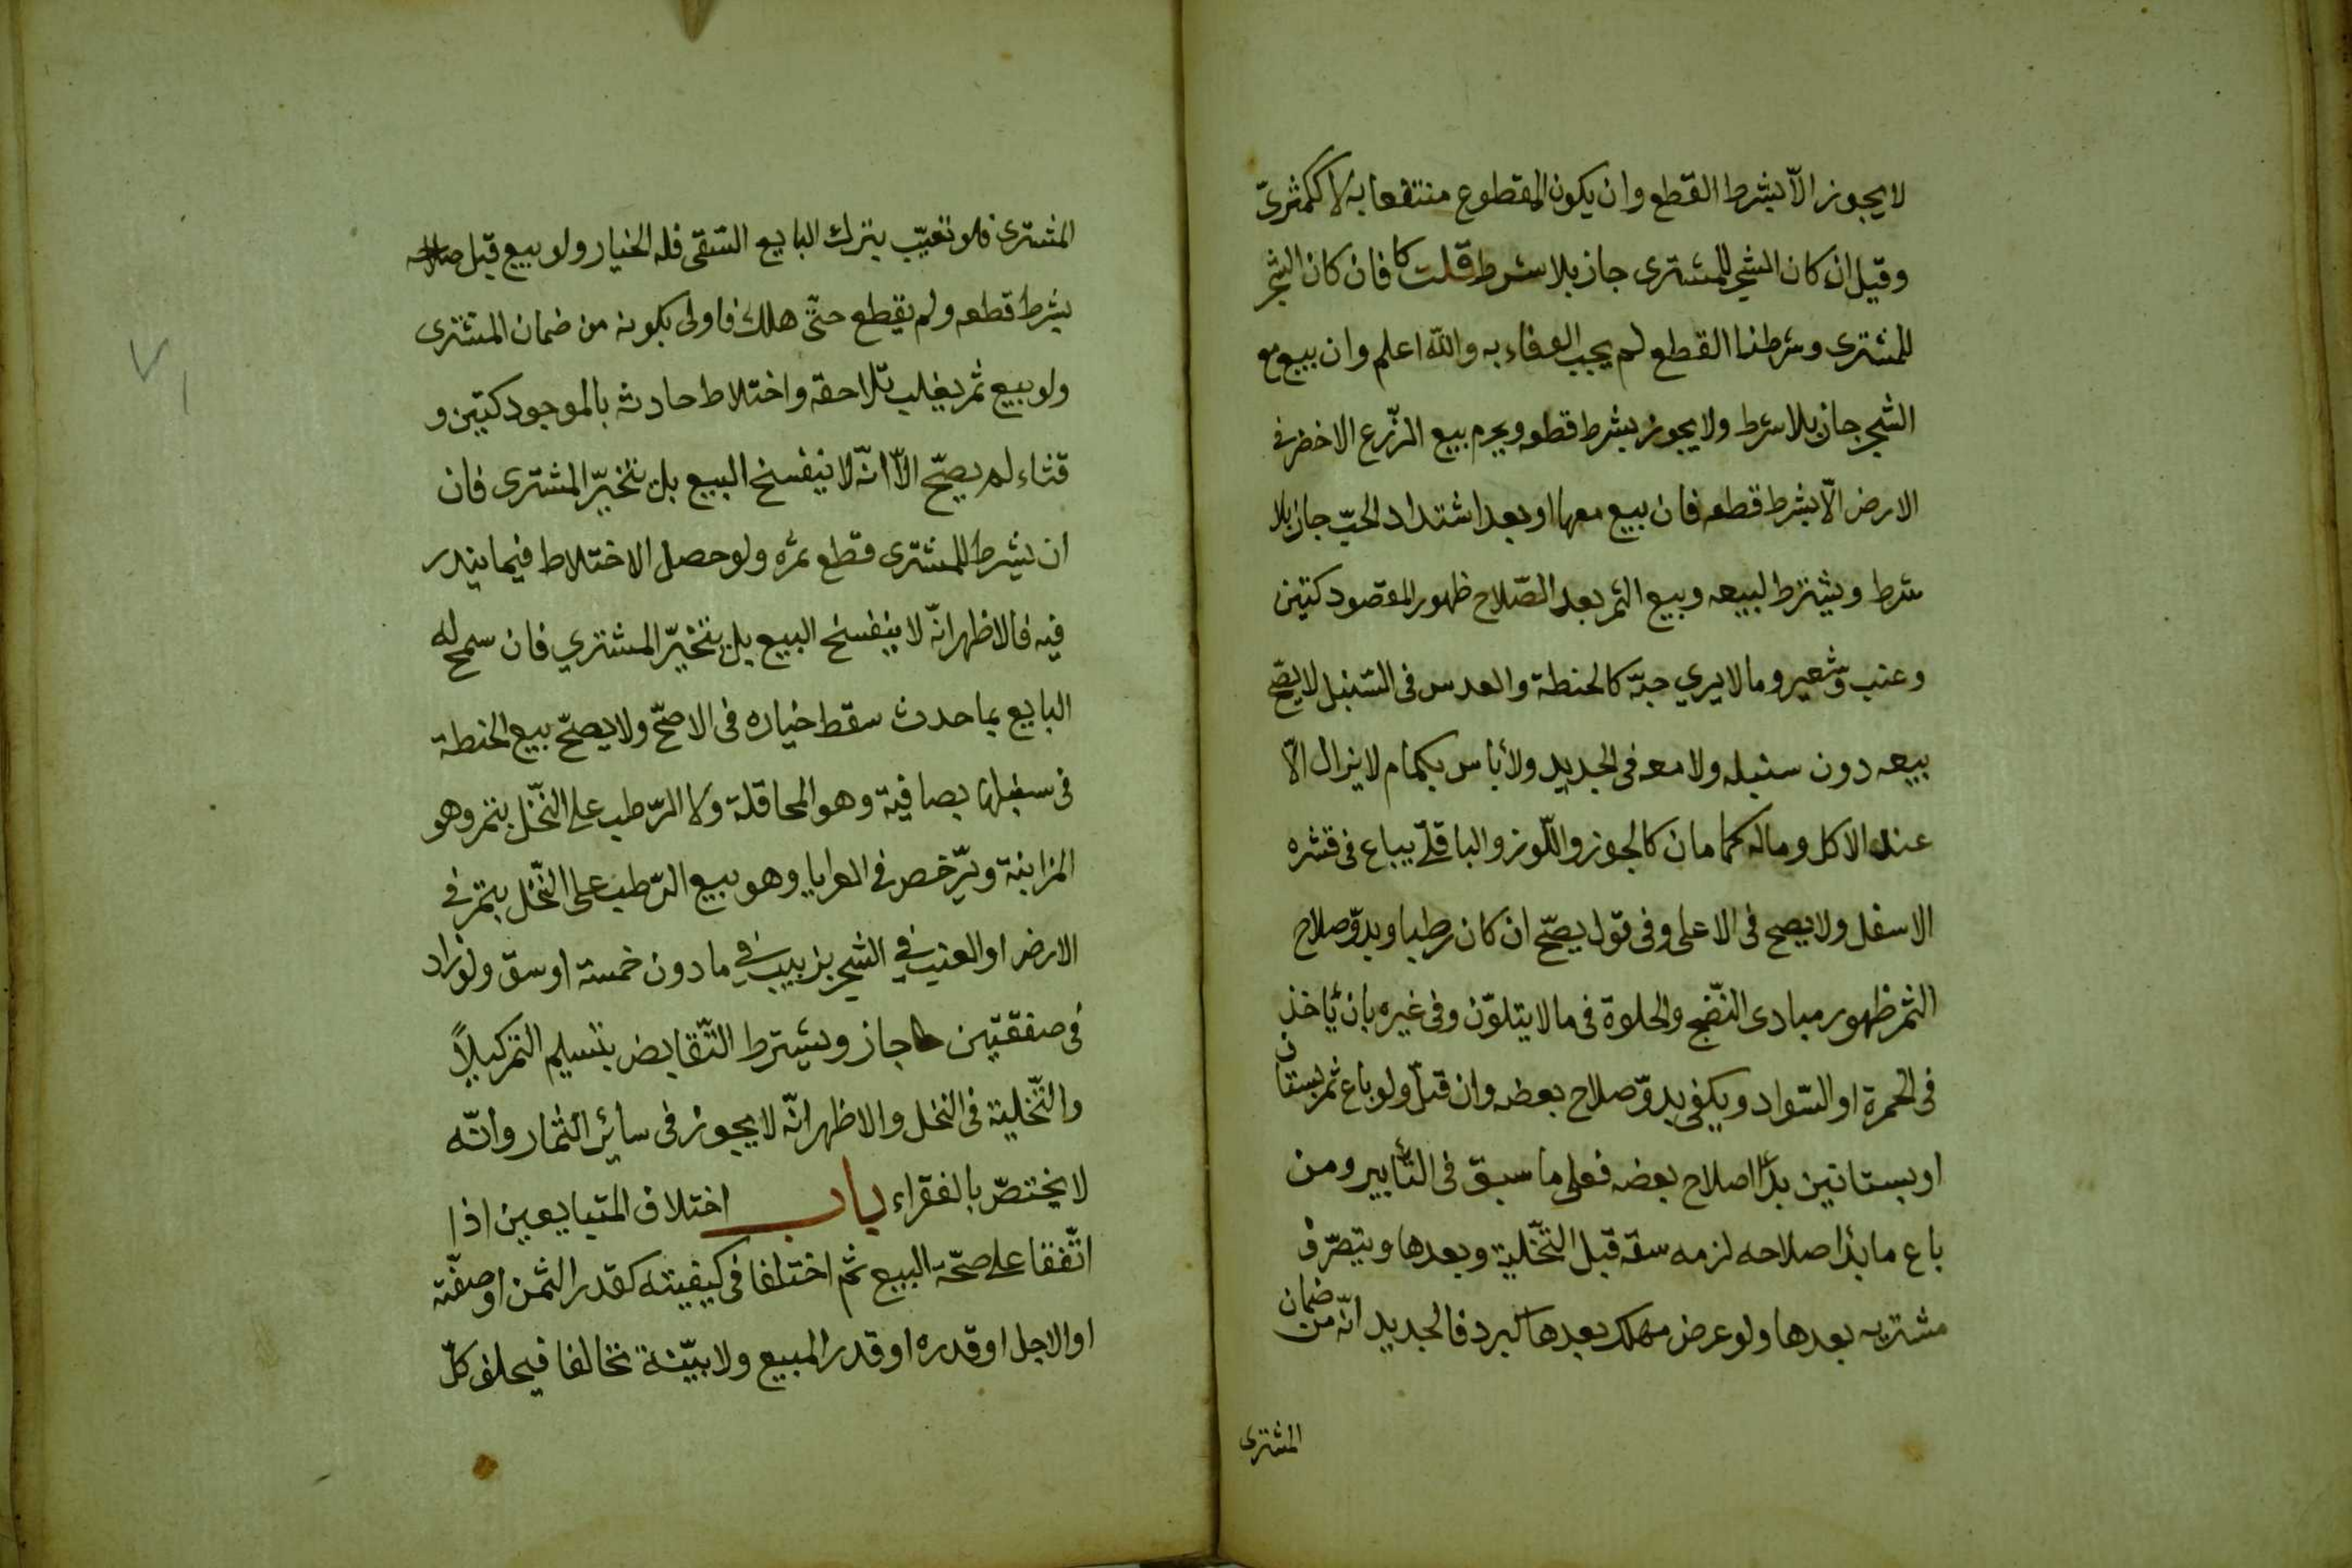 لا يجوز الّا بشرط القطع وان يكون المقطوع منتفعا به لا ككمثرىّ
وقيل ان كان الشجر للمشترى جاز بلا شرط قلت كا فان كان الشجر
للمشترى وشرطنا القطع لم يجب الوفاء به والله اعلم وان بيع مع
الشجر جاز بلا شرط ولا يجوز بشرط قطعه ويحرم بيع الزّرع الاخضر في
الارض الّا بشرط قطعه فان بيع معها او بعد اشتداد الحبّ جاز بلا
شرط ويشترط لبيعه وبيع الثمر بعد الصّلاح ظهور المقصود كتين
وعنب وشعير وما لا يري حبّه كالحنطة والعدس فى السّنبل لا يصّح
بيعه دون سنبله ولا معه فى الجديد ولا بأس بكمام لا يزال الّا
عند الاكل وماله كمامان كالجوز واللّوز والباقلّى يباع فى قشره
الاسفل ولا يصح فى الاعلى وفى قول يصحّ ان كان رطبا وبدوّ صلاح
الثمر ظهور مبادى النّضج والحلوة فى ما لا يتلوّن وفى غيره بان يّأخذ
فى الحمرة او السّواد ويكفى بدوّ صلاح بعضه وان قبلّ ولو باع ثمر بستان
او بستانين بدا اصلاح بعضه فعلى ما سبق فى التأبير ومن
باع ما بدا صلاحه لزمه سقه قبل التّخلية وبعدها ويتصرّف
مشتريه بعدها ولو عرض مهلك بعدها كبرد فالجديد انّه من ضمان
المشترى
المشترى فلو تعيّب بترك البايع السّقى فله الخيار ولو بيع قبل صلاحه
بشرط قطعه ولم يقطع حتّى هلك فاولى بكونه من ضمان المشترى
ولو بيع ثمر يغلب تلاحقه واختلاط حادثه بالموجود كتين و
قثاء لم يصحّ الّا انّه لا ينفسخ البيع بل يتخيّر المشترى فان
ان يشرط للمشترى قطع ثمره ولو حصل الاختلاط فيما يندر
فيه فالاظهر انّه لا ينفسخ البيع بل يتخيّر المشتري فان سمح له
البايع بما حدث سقط خياره فى الاصحّ ولا يصحّ بيع الحنطة
فى سنبلها بصافية وهو المحاقلة ولا الرّطب على النّخل بتمر وهو
المزابنة ويرّخص في العرايا وهو بيع الرّطب على النّخل بتمر في
الارض او العنب في الشجر بزبيب في ما دون خمسة اوسق ولو زاد
فى صفقتين جاز ويشترط التّقابض بتسليم التمر كيلاً
والتّخلية فى النخل والاظهر انّه لا يجوز فى سائر الثمار وانّه
لا يختصّ بالفقراء باب اختلاف المتبايعين اذا
اتّفقا على صحّة البيع ثم اختلفا فى كيفيته كقدر الثمن او صفّته
او الاجل او قدره او قدر المبيع ولا بيّنة تحالفا فيحلف كلّ